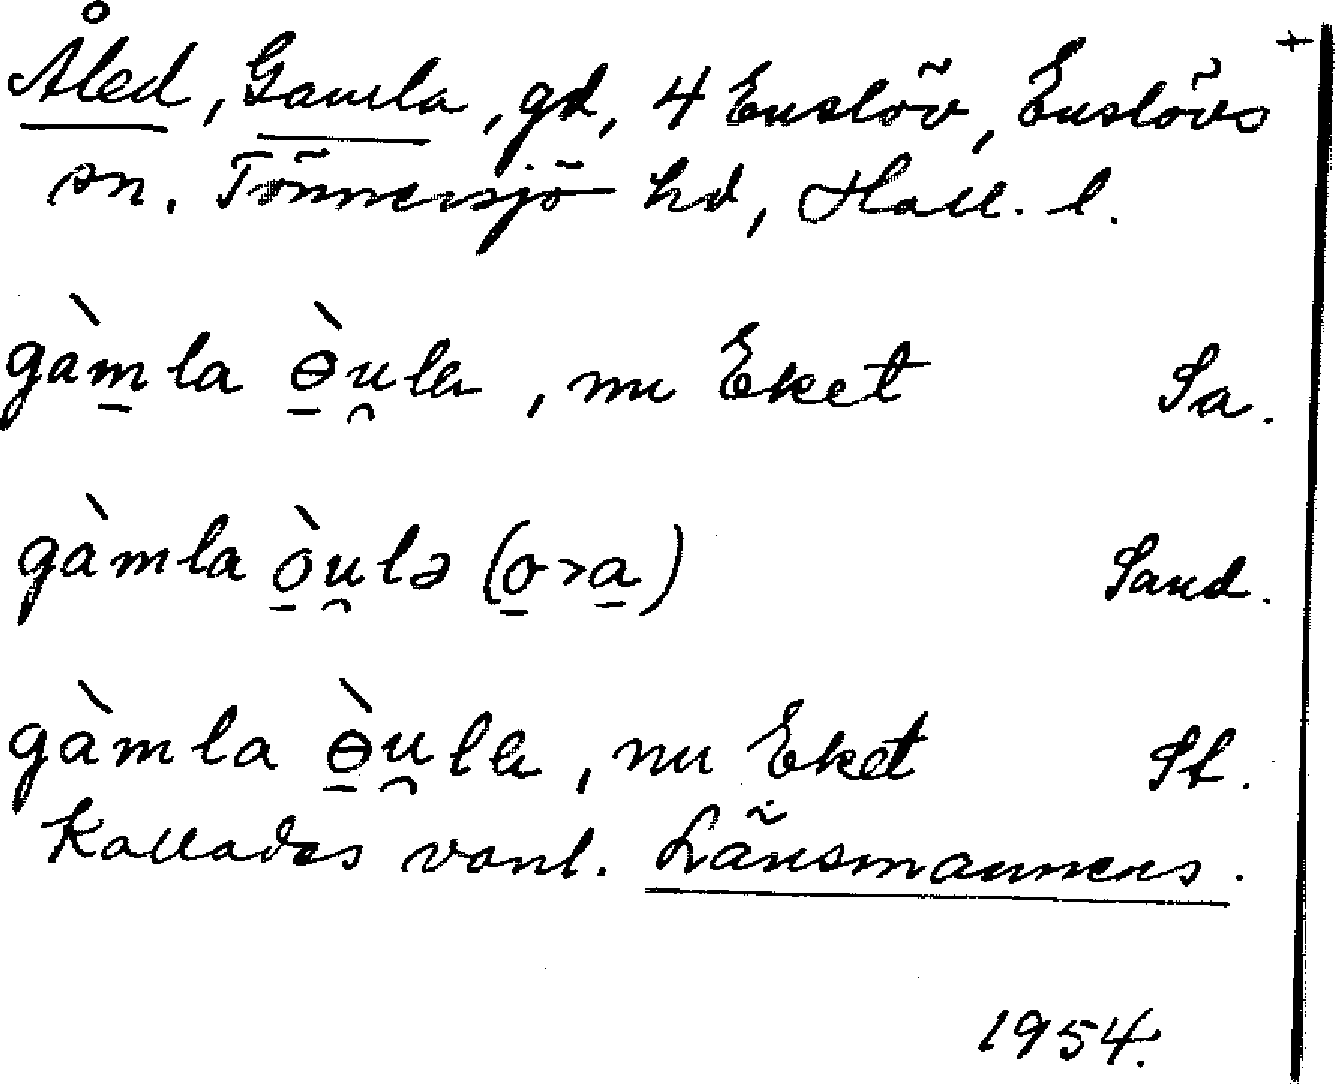 Åled, Gamla, gd, 4 Enslöv, Enslövs +
sn. Tönnersjö hd, Hall. l.
gàm̲la ɵ̲̀u̯la, nu Eket Sa.
gàmla ò̲u̯lə (o̲>a̲) Sand.
gàmla ɵ̲̀u̯la, nu Eket St.
Kallades vanl. Länsmannens.
1954.